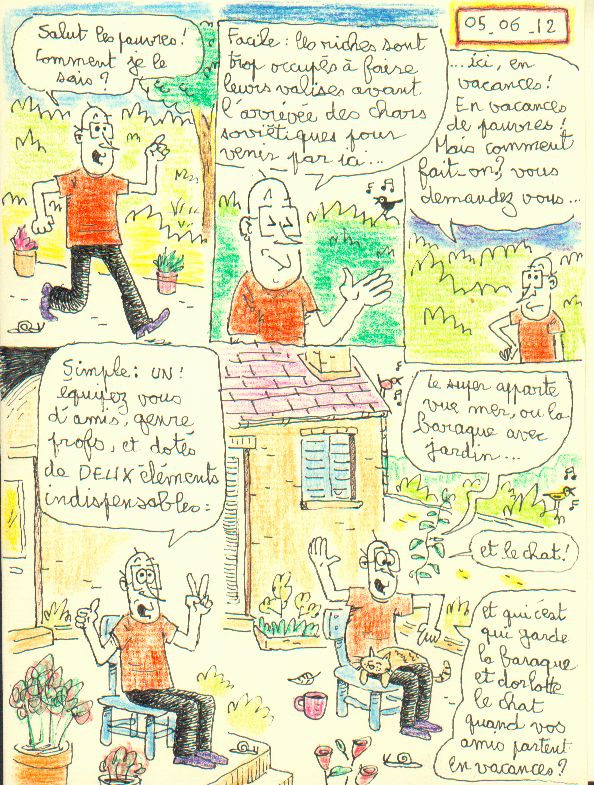 Salut les pauvres!
Comment je le
sais?
Facile: les riches sont
trop occupés à faire
leurs valises avant
l'arrivée des chars
soviétiques pour
venir par ici...
05_06_12
...ici, en
vacances!
En vacances
de pauvres!
Mais comment
fait-on? vous
demandez vous...
Simple: UN!
équipez vous
d'amis, genre
profs, et dotés
de DEUX éléments
indispensables:
le super apparte
vue mer, ou la
baraque avec
jardin...
et le chat!
et qui c'est
qui garde
la baraque
et dorlotte
le chat
quand vos
amis partent
en vacances?